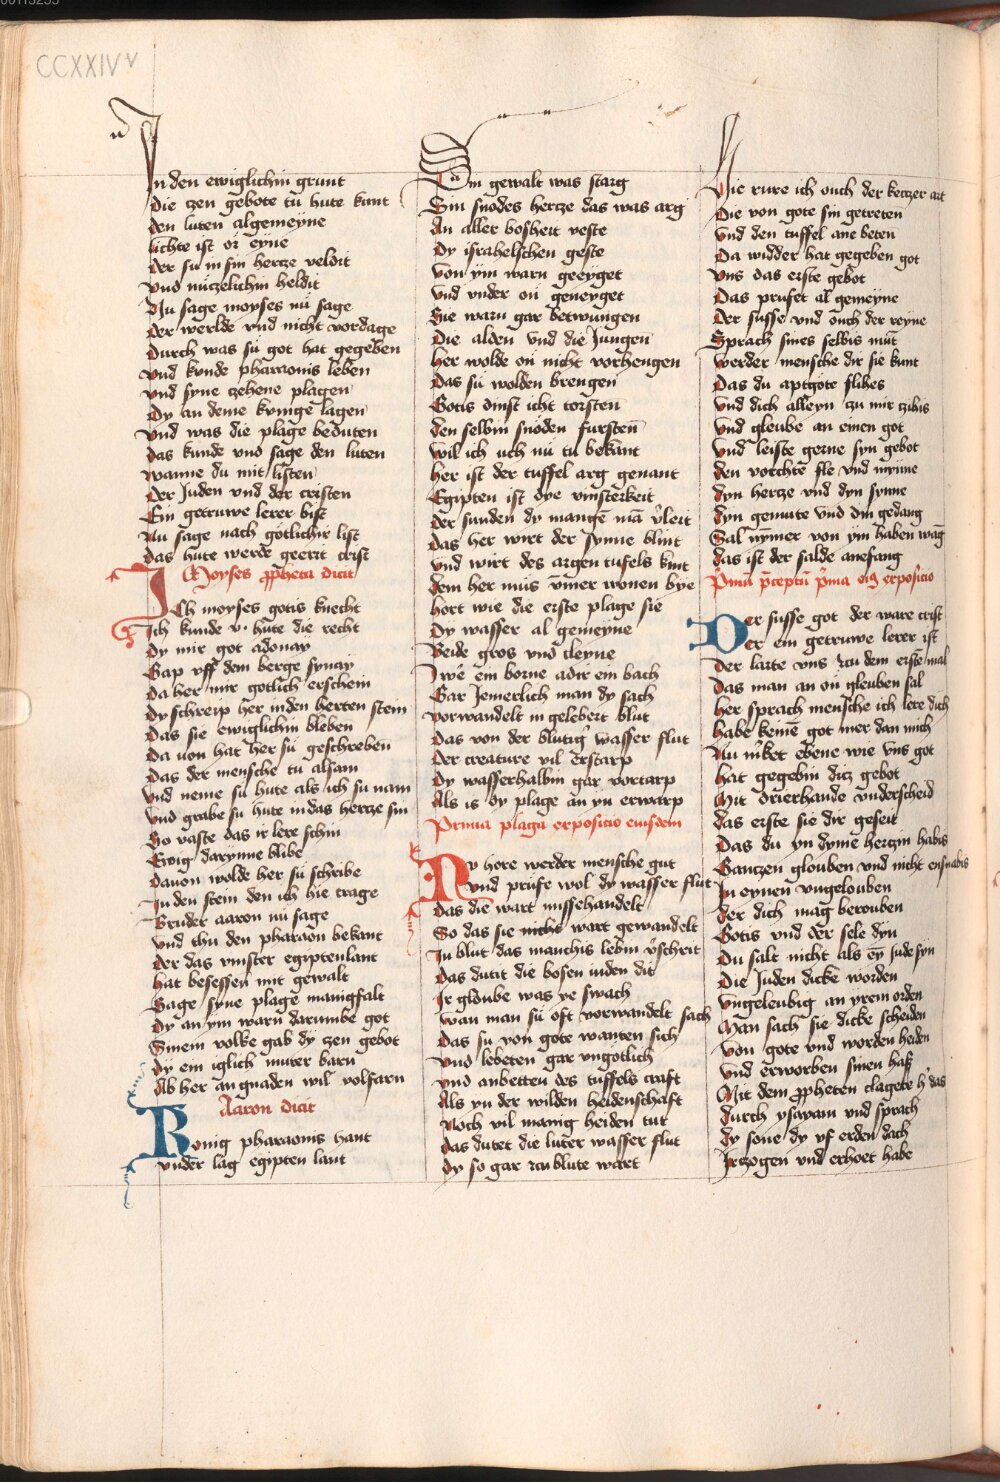 CCXXIV v
In den ewiglichin grunt
Die zen gebote tu hute kunt
Den luten algemeyne
lichte ist or eyne
Der su in sin hertze veldit
Vnd nutzelichin heldit
Nu sage moyses nu sage
Der werlde vnd nicht vordage
Durch was su got hat gegeben
Vnd kunde pharaonis leben
Vnd syne zehene plagen
Dy an deme kunige lagen
Vnd was die plage beduten
Das kunde vnd sage den luten
Wanne du mit listen
Der Juden vnd der cristen
Ein getruwe lerer bist
Nu sage nach gotlichir list
Das hute werde geerit crist
Moyses ꝓpheta dicit
Ich moyses gotis knecht
Ich kunde v hute die recht
Dy mir got adonay
Gap vff dem berge synay
Da her mir gotlich erschein
Dy schreip her in den herten stein
Das sie ewiglichin bleben
Da uon hat her su geschreben
Das der mensche tu alsam
Vnd neme su hute als ich su nam
Vnd grabe su hute in das hertze sin
So vaste das ir lere schin
Ewig darynne blibe
Dauon wolde her su schribe
In den stein den ich hie trage
Bruder aaron nu sage
Vnd thu den pharaon bekant
Der das vinster egiptenlant
Hat besessen mit gewalt
Sage syne plage manigfalt
Dy an ym warn darumbe got
Sinem volke gab dy zen gebot
Dy em iglich muter barn
Ab her an gnaden wil volfarn
Aaron dicit
Konig pharaonis hant
Vnder lag egipten lant
Sin gewalt was starg
Sin snodes hertze das was arg
An aller bosheit veste
Dy israhelschen geste
Von ym warn geeyget
Vnd vnder on geneyget
Sie warn gar betwungen
Die alden vnd die Jungen
Her wolde on nicht vorhengen
Das su wolden brengen
Gotis dinst icht torsten
Den selbin snoden fursten
Wil ich uch nu tu bekant
Her ist der tuffel arg genant
Egipten ist dye vinsterkeit
Der sunden dy mange mā v̄leit
Das her wirt der synne blint
Vnd wirt des argen tufels kint
Dem her mus ymer wonen bye
Hort wie die erste plage sie
Dy wasser al gemeyne
Beide gros vnd cleyne
Iwē ein borne adir ein bach
Gar Jemerlich man dy sach
Vorwandelt in gelebert blut
Das von der blutig wasser flut
Der creature vil erstarp
Dy wasserhalbin gar vortarp
Als is dy plage an yn erwarp
Prima plaga expositio eiusdem
Nv hore werder mensche gut
Vnd prufe wol dy wasser flut
Das die wart missehandelt
So das sie nichs wart gewandelt
In blut das manchis lebin v̄schert
Das dutit die bosen iuden dit
Ir gloube was ye swach
Wan man su oft vorwandelt sach
Das su von gote wanten sich
Vnd lebeten gar vngotlich
Vnd anbetten des tuffels craft
Als yn der wilden heidenschaft
Noch vil manig heiden tut
Das dutet die luter wasser flut
Dy so gar zu blute wart
Hie rure ich ouch der ketzer art
Die von gote sin getreten
Vnd den tuffel ane beten
Da widder hat gegeben got
Vns das erste gebot
Das prufet al gemeyne
Der susse vnd ouch der reyne
Sprach sines selbis mut
Werder mensche dir sie kunt
Das du aptgote flihes
Vnd dich alleyn zu mir zihis
Vnd gleube an einen got
Vnd leiste gerne syn gebot
Den vorchte fle vnd mynne
Dyn hertze vnd dyn synne
Dyn gemute vnd din gedang
Sal nymer von ym haben wāg
Das ist der salde anefang
Primū p̄ceptū p̄ma eiꝰ expositio
Der susse got der ware crist
Der ein getruwe lerer ist
Der larte vns zu dem erste mal
Das man an on gleuben sal
Her sprach mensche ich lere dich
Habe keine got mer dan mich
Nu mket ebene wie vns got
Hat gegebin ditz gebot
Mit drierhande vnderscheid
Das erste sie dir geseit
Das du yn dyme hertzin habis
Gantzen glouben vnd nicht ensnabis
In eynen vngelouben
Der dich mag berouben
Gotis vnd der sele dyn
Du salt nicht als ey Jude syn
Die Juden dicke worden
Vngeleubig an yrem orden
Man sach sie dicke scheiden
Von gote vnd worden heiden
Vnd erworben sinen haß
Mit dem ꝓpheten clagete h' das
Durch ysayam vnd sprach
Dy sone dy vf erden dach
Irtzogen vnd erhoet habe